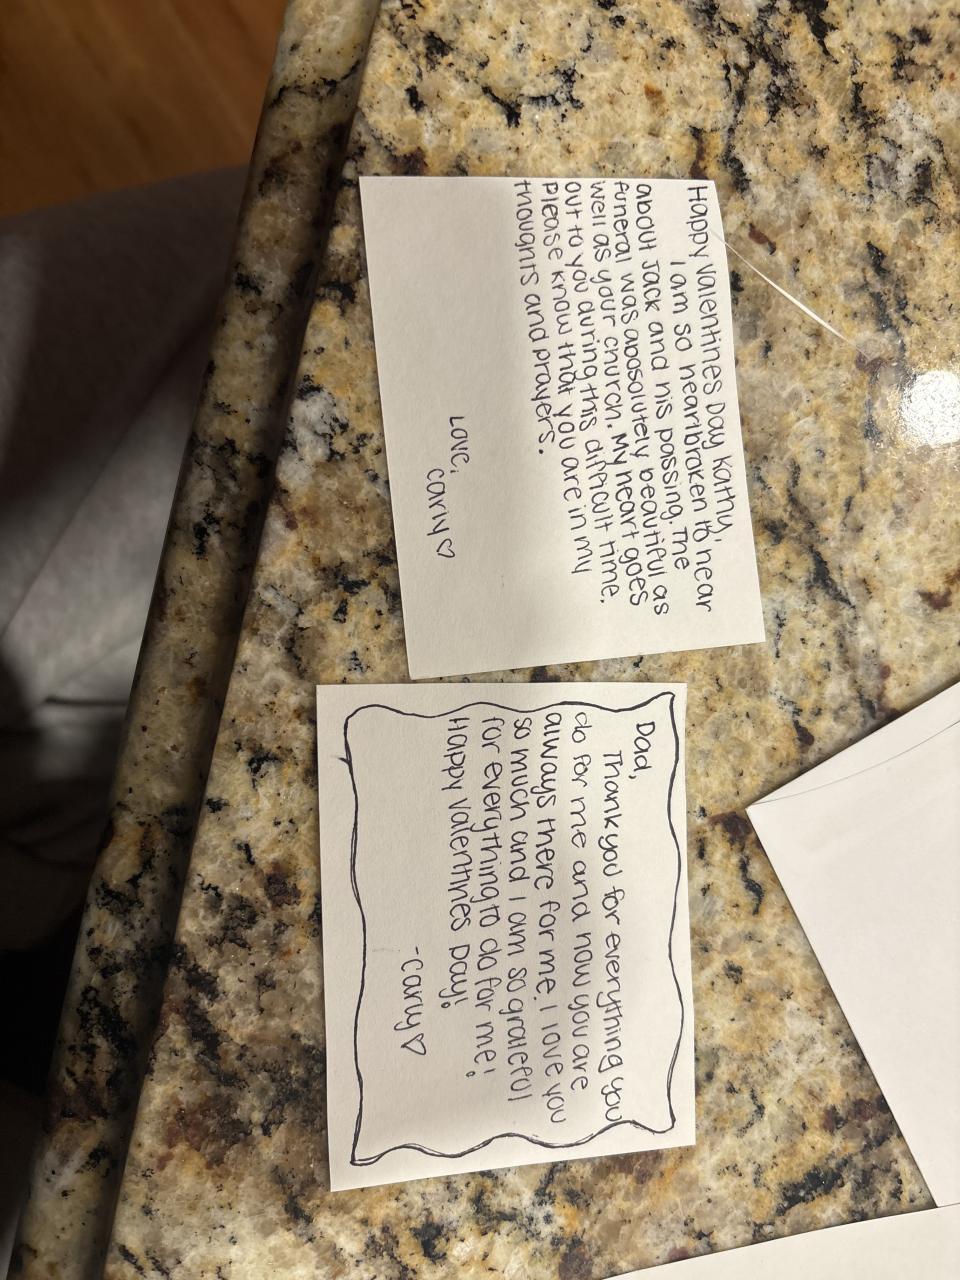 Happy Valentines Day Kathy,
I am so heartbroken to hear
about Jack and his passing. The
funeral was abosolutely beautiful as
well as your church. My heart goes
out to you during this difficult time.
Please know that you are in my
thoughts and prayers.
Love,
Carly♡
Dad,
Thank you for everything you
do for me and how you are
always there for me. I love you
so much and I am so grateful
for everything to do for me!
Happy Valentines Day!
-Carly♡